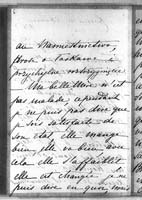 au Namiestnictwo,
Proszę o łaskawe
przychylne
Ma belle Mère n'est
pas malade, cependant
je ne puis pas dire que je
sois satisfaite de
son état, elle mange
bien, elle va bien avec
cela elle s'affaiblit
elle est changée, je ne
puis dire en quoi, mais